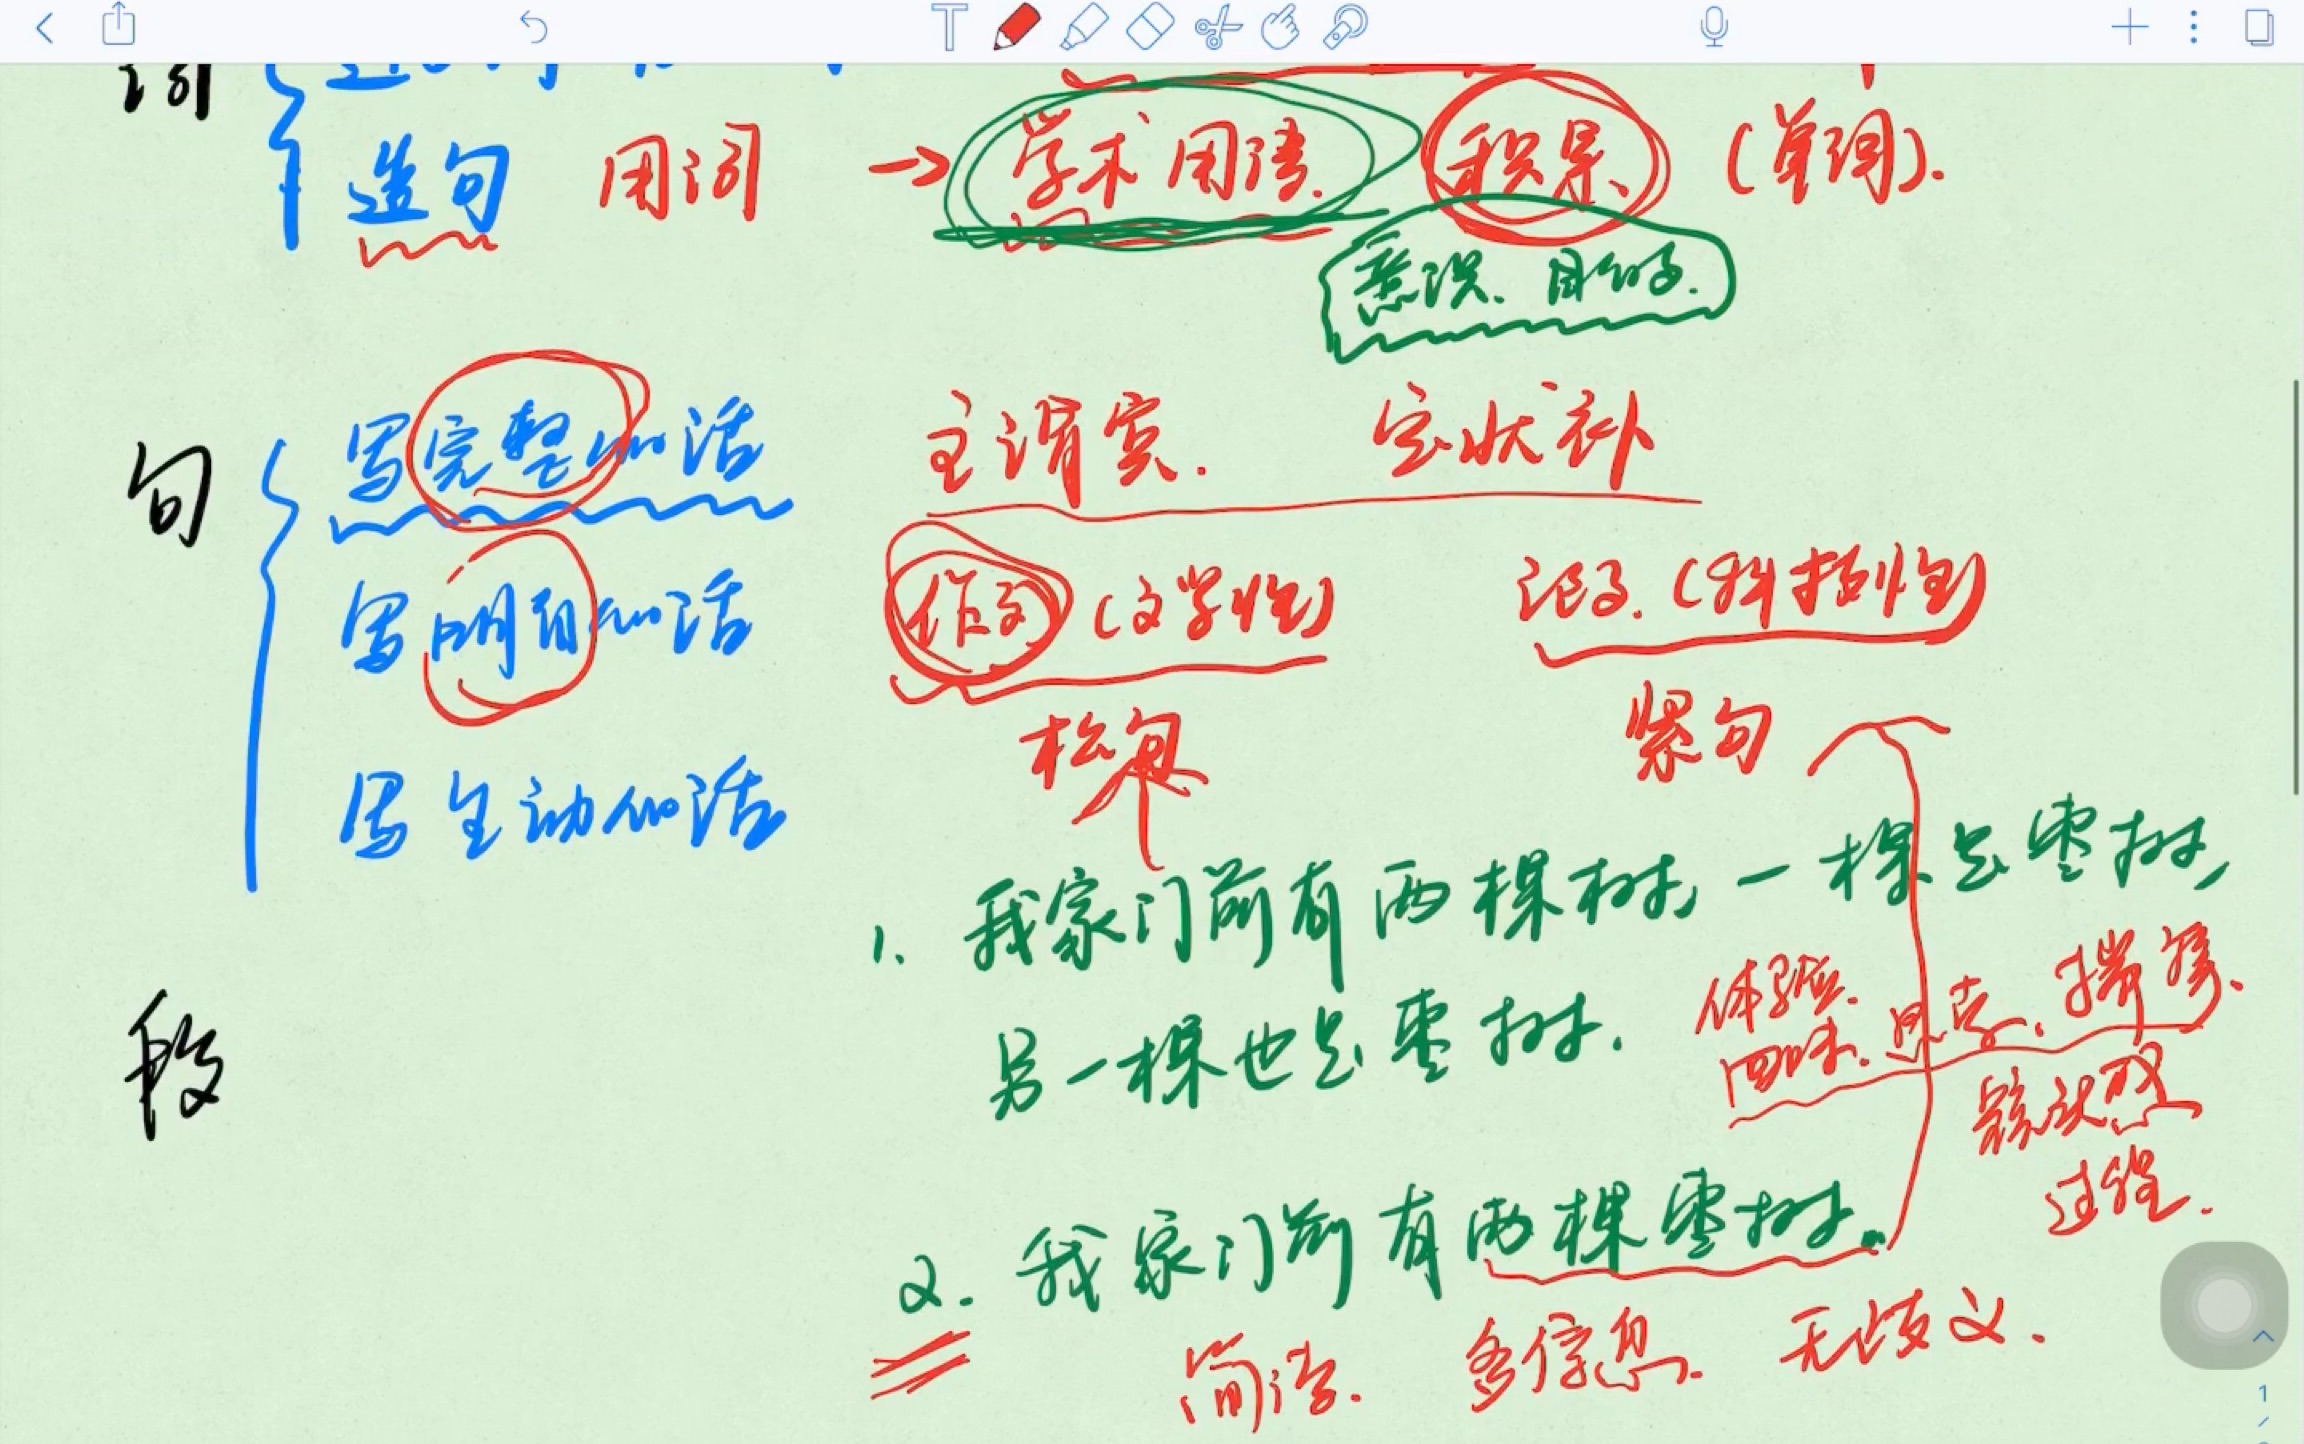 词
造句 用词 → 学术用语. 积累 (单词).
意识. 目的.
句
写完整的话 主谓宾. 定状补
写明白的话 作文 (文学性) 论文. (科技性)
松句 紧句
写生动的话
1. 我家门前有两棵树, 一棵是枣树,
另一棵也是枣树.
体验. 回味. 思考. 揣摩.
过程.
段
2. 我家门前有两棵枣树.
简洁. 多信息. 无歧义.
1